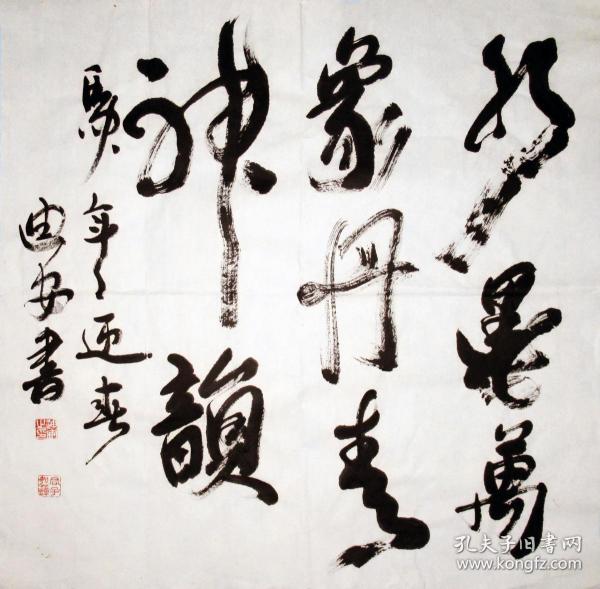 墨萬
象丹青
神韻
年迎春
迪安書
孔夫子旧书网
www.kongfz.com